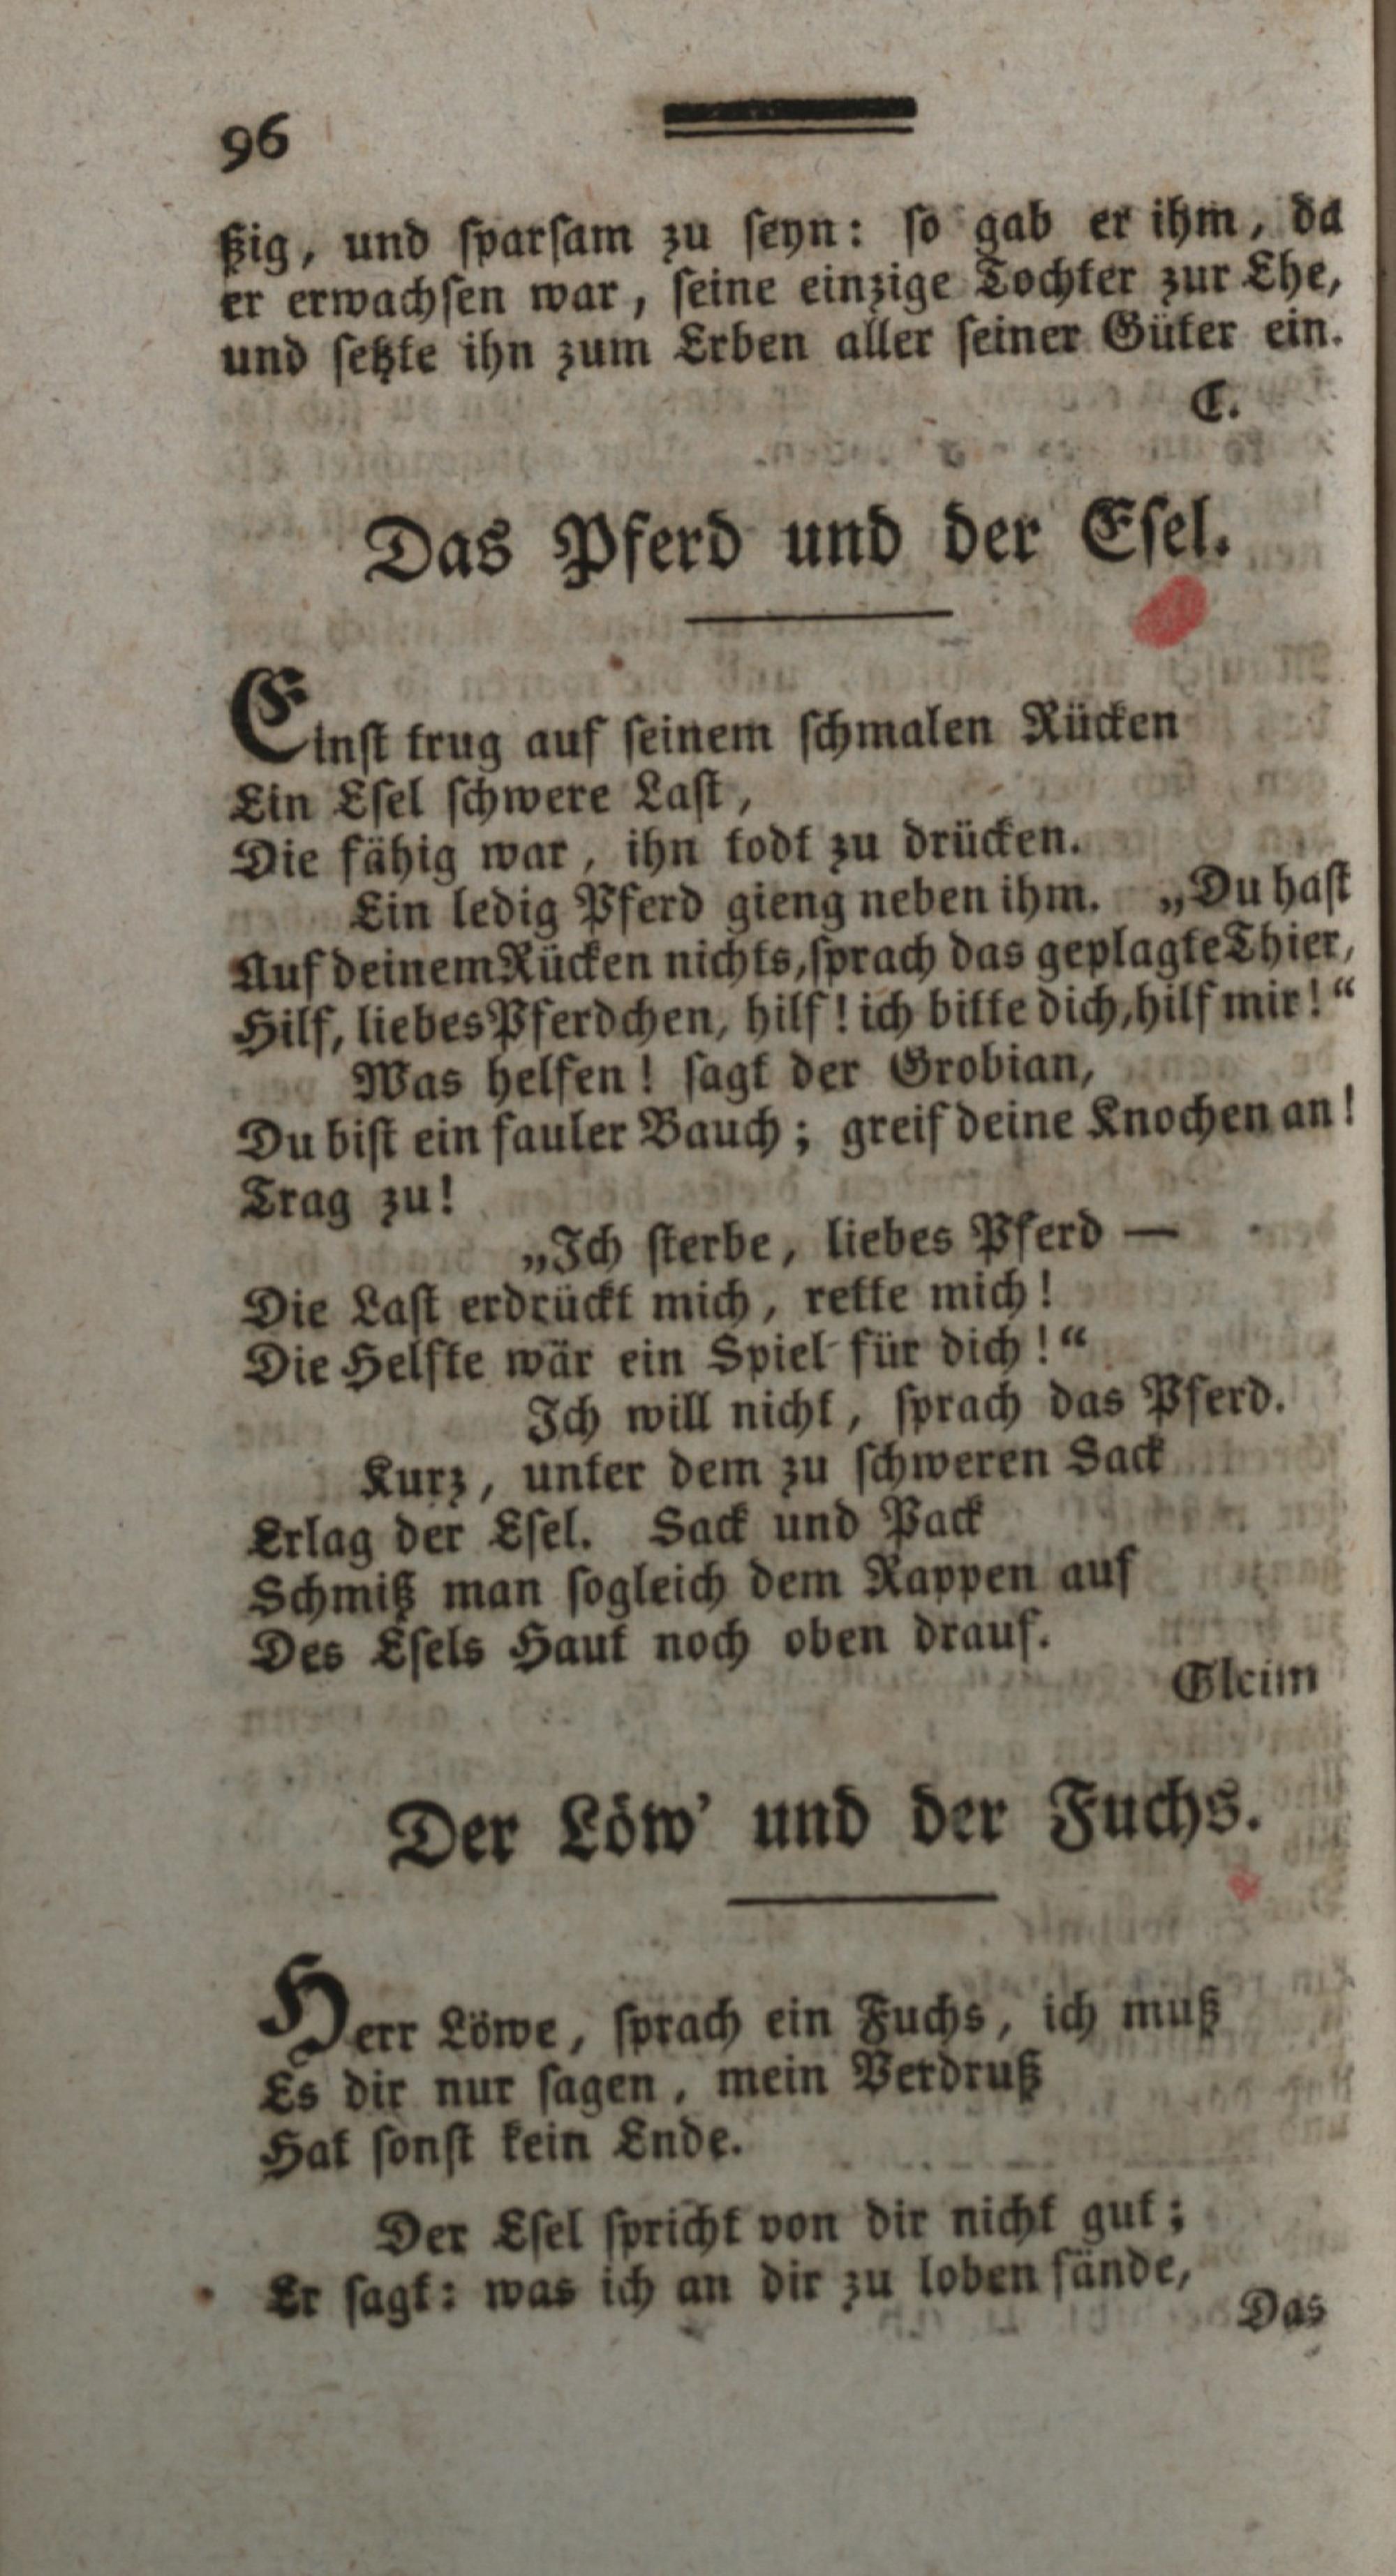 96
ßig, und sparsam zu seyn: so gab er ihm, da
er erwachsen war, seine einzige Tochter zur Ehe,
und setzte ihn zum Erben aller seiner Güter ein.
C.
Das Pferd und der Esel.
Einst trug auf seinem schmalen Rücken
Ein Esel schwere Last,
Die fähig war, ihn todt zu drücken.
Ein ledig Pferd gieng neben ihm. „Du hast
Auf deinem Rücken nichts, sprach das geplagte Thier,
Hilf, liebes Pferdchen, hilf! ich bitte dich, hilf mir!“
Was helfen! sagt der Grobian,
Du bist ein fauler Bauch; greif deine Knochen an!
Trag zu!
„Ich sterbe, liebes Pferd —
Die Last erdrückt mich, rette mich!
Die Helfte wär ein Spiel für dich!“
Ich will nicht, sprach das Pferd.
Kurz, unter dem zu schweren Sack
Erlag der Esel. Sack und Pack
Schmiß man sogleich dem Rappen auf
Des Esels Haut noch oben drauf.
Gleim
Der Löw' und der Fuchs.
Herr Löwe, sprach ein Fuchs, ich muß
Es dir nur sagen, mein Verdruß
Hat sonst kein Ende.
Der Esel spricht von dir nicht gut;
Er sagt: was ich an dir zu loben fände,
Das